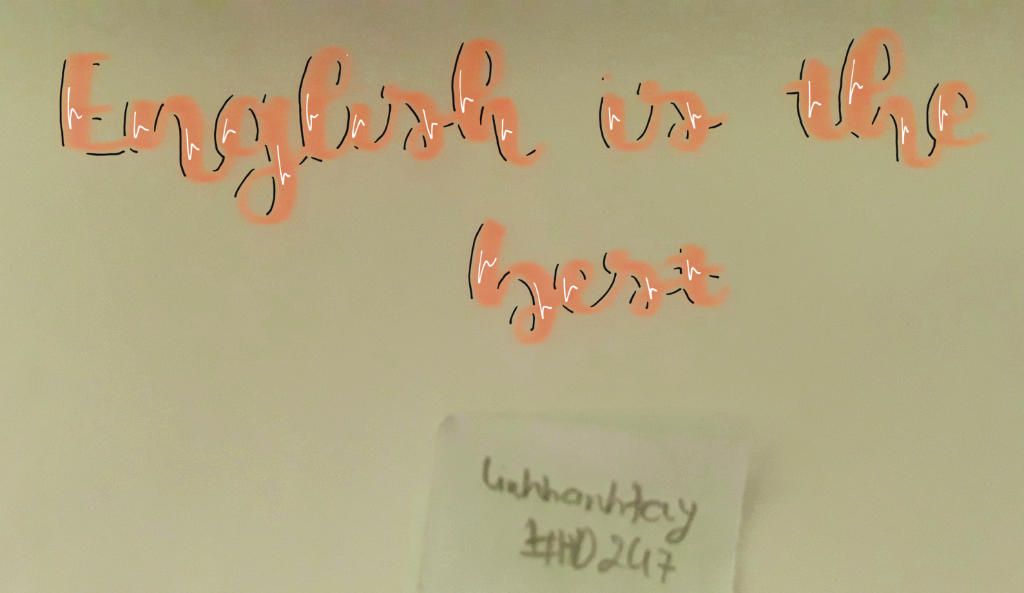 English is the
best
linhhanhtay
#HD247